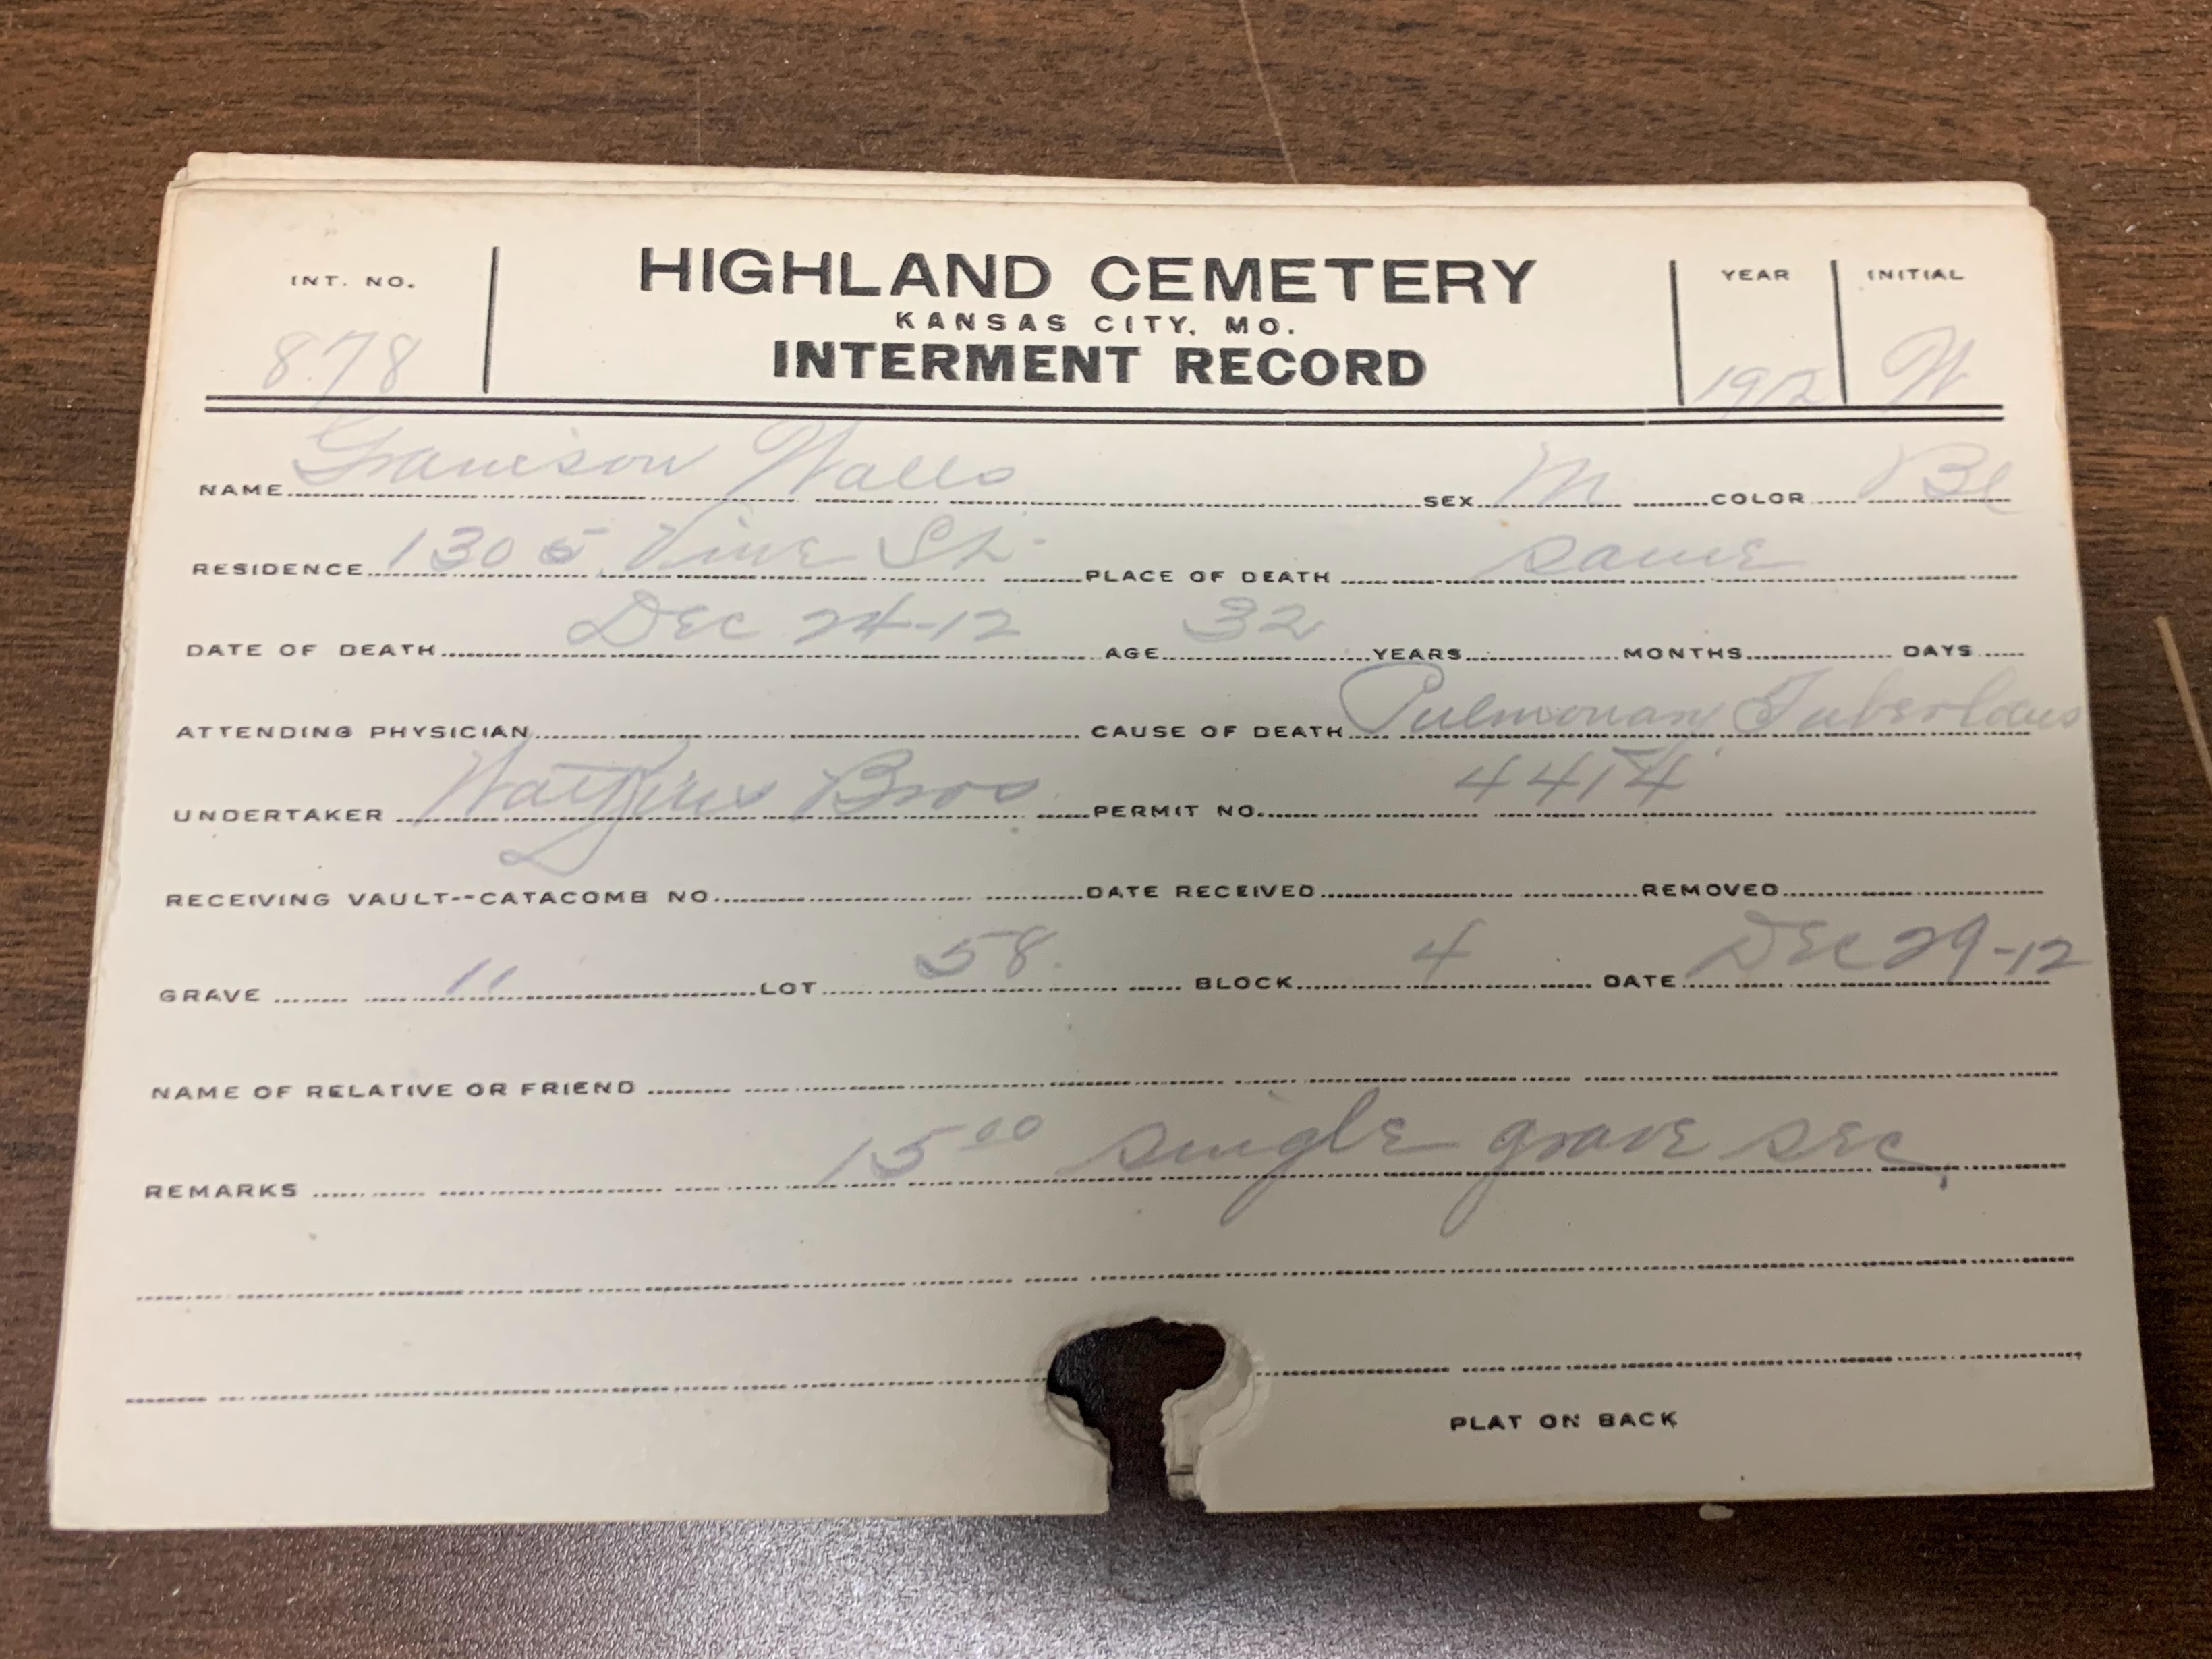 INT. NO. HIGHLAND CEMETERY YEAR INITIAL
KANSAS CITY, MO.
878 INTERMENT RECORD 1912 W
NAME Garrison Walls SEX M COLOR Bl
RESIDENCE 1305 Vine St. PLACE OF DEATH same
DATE OF DEATH Dec 24-12 AGE 32 YEARS MONTHS DAYS
ATTENDING PHYSICIAN CAUSE OF DEATH Pulmonary
UNDERTAKER Watkins Bros PERMIT NO. 4414
RECEIVING VAULT--CATACOMB NO. DATE RECEIVED REMOVED
GRAVE 11 LOT 58. BLOCK 4 DATE Dec 29-12
NAME OF RELATIVE OR FRIEND
REMARKS 15 00 single grave sec,
PLAT ON BACK